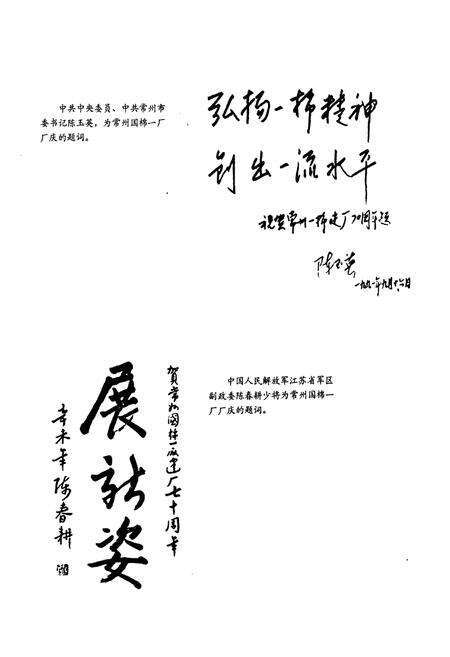 中共中央委员、中共常州市
委书记陈玉英，为常州国棉一厂
厂庆的题词。
弘扬一棉精神
创出一流水平
祝贺常州一棉建厂70周年题
陈玉英
一九九一年九月十六日
賀常州國棉一厰建厂七十周年
展新姿
辛未年 陈春耕
中国人民解放军江苏省军区
副政委陈春耕少将为常州国棉一
厂厂庆的题词。